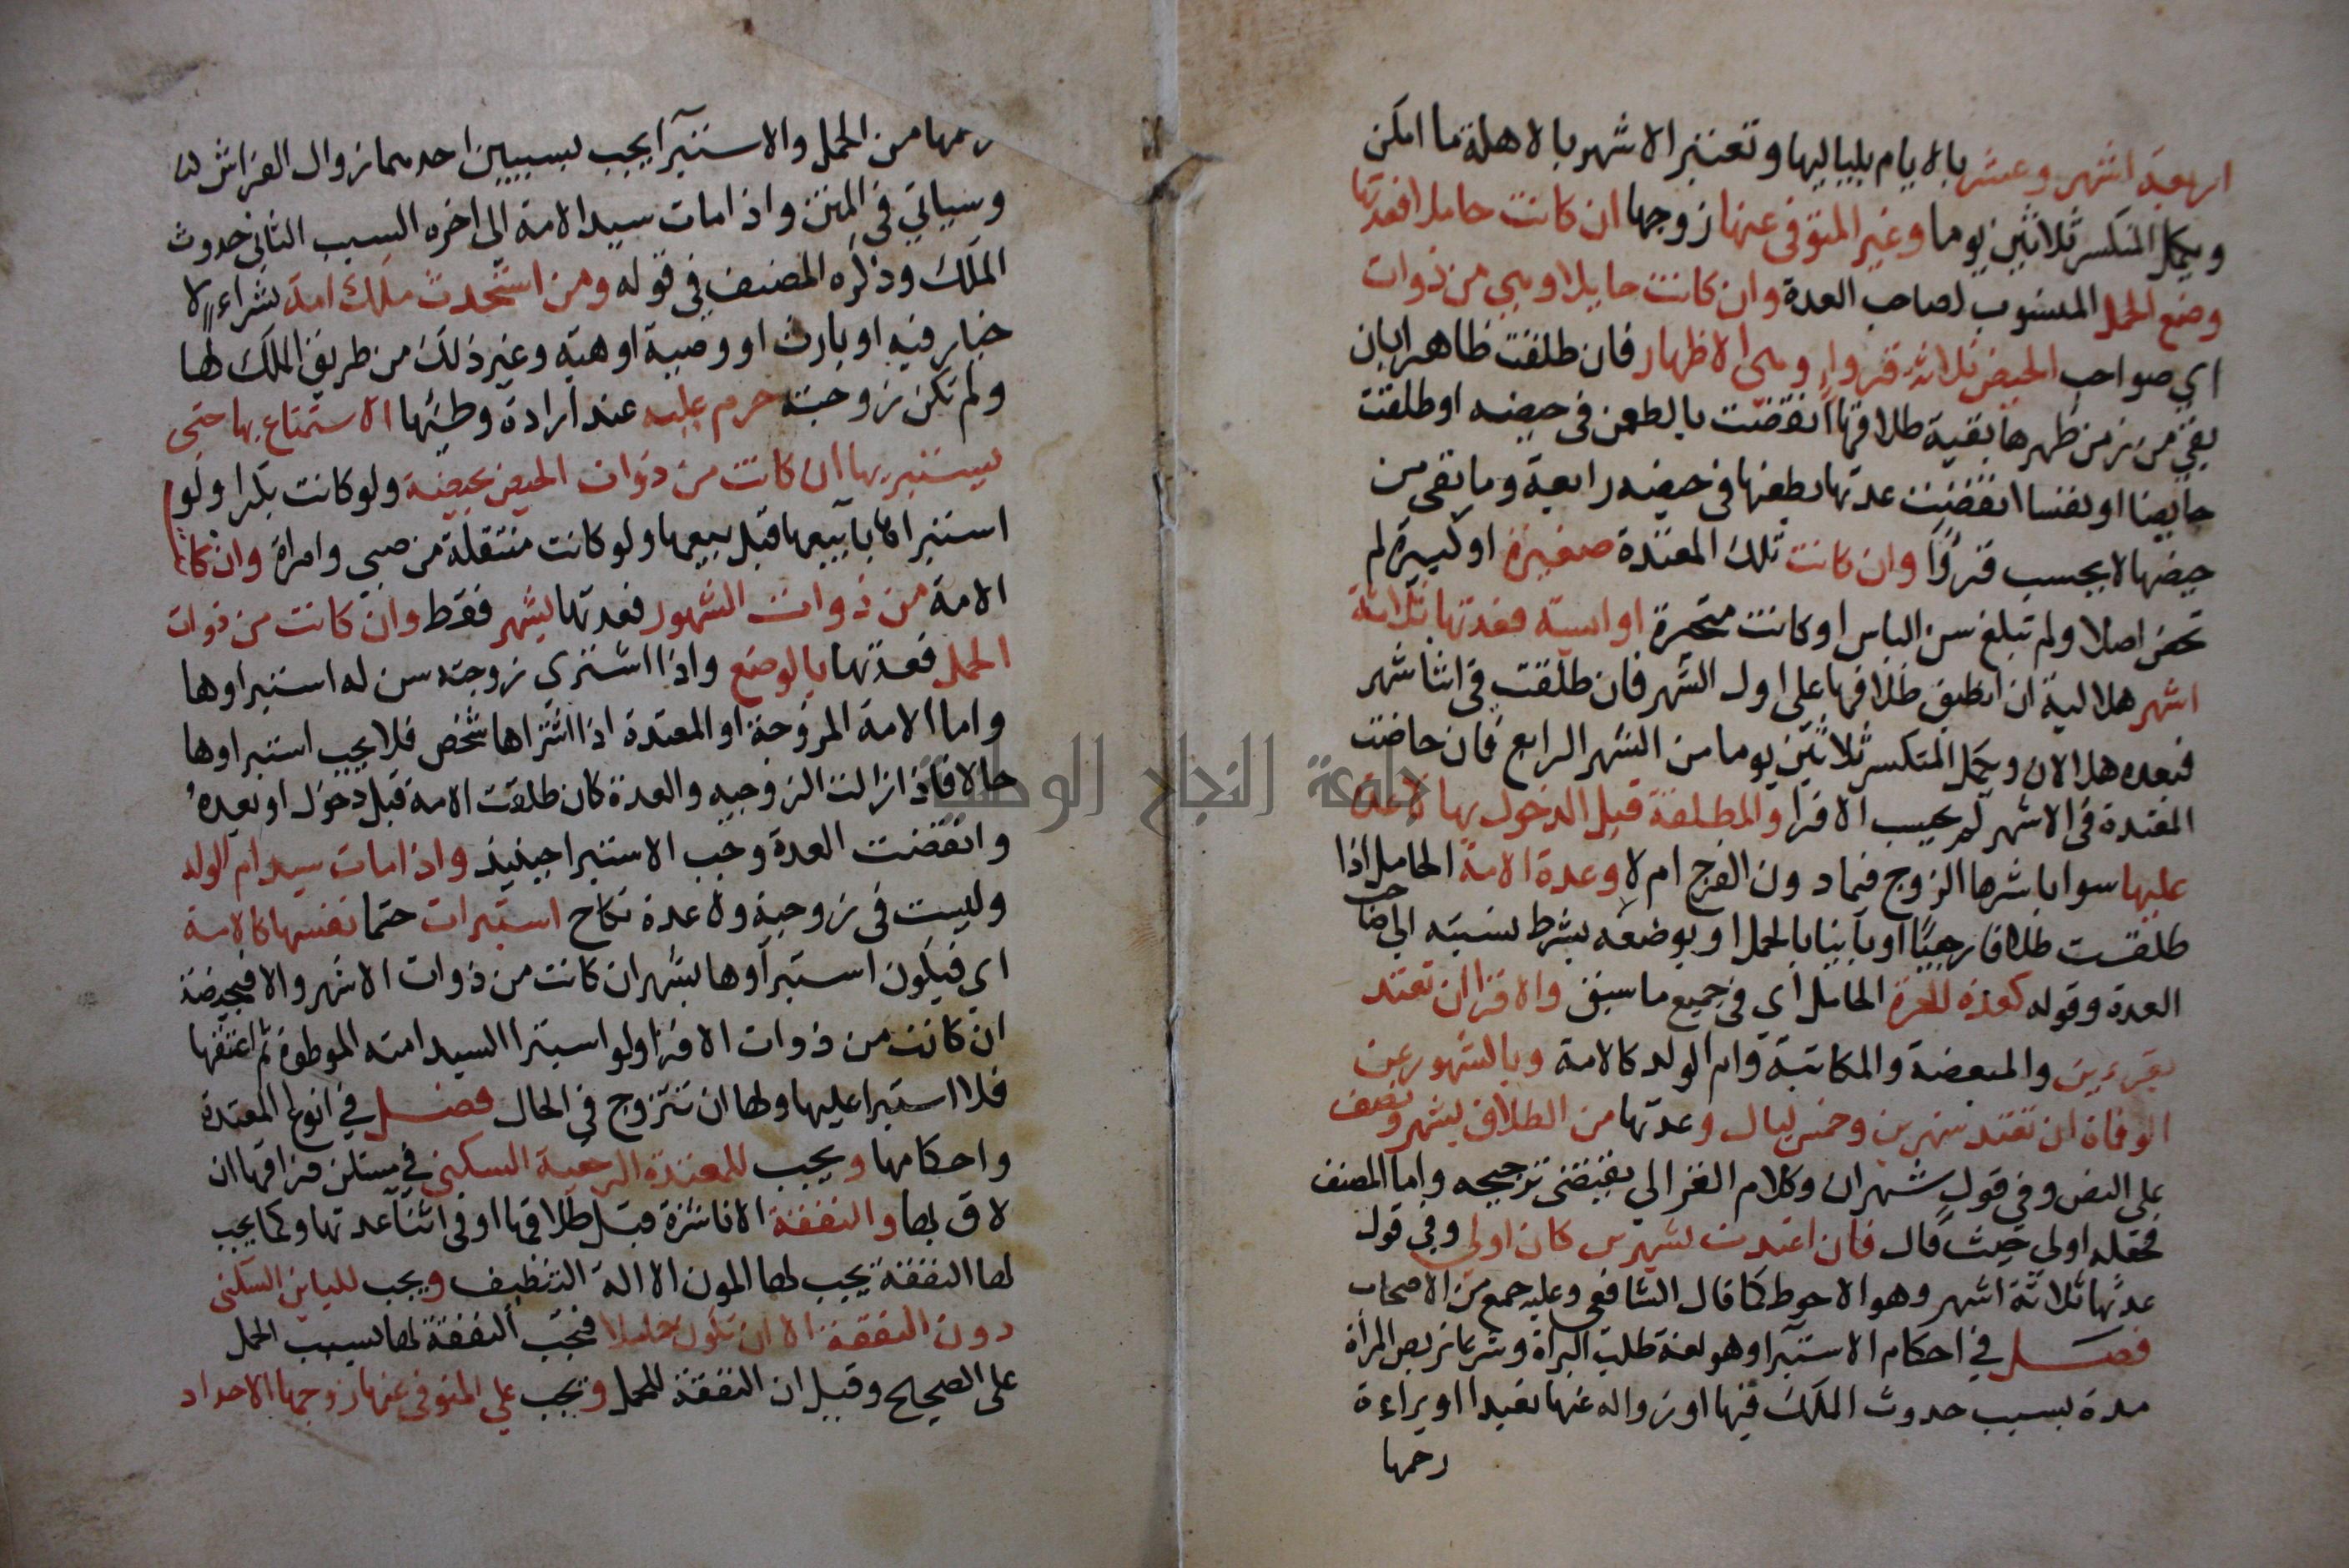 اربعة اشهر وعشر بالايام بلياليها وتعتبر الاشهر بالاهلة ما امكن
ويكمل المنكسر ثلاثين يوما وغير المتوفى عنها زوجها ان كانت حاملا فعدتها
وضع الحمل المنسوب لصاحب العدة وان كانت حايلا وهي من ذوات
اي صواحب الحيض ثلاثة قروء وهي الاظهار فان طلقت ظاهرا بان
بقي من زمن طهرها بقية طلاقها انقضت بالطعن في حيضه او طلقت
حايضا او نفسا انقضت عدتها بطعنها في حيضه رابعة وما بقي من
حيضها لا يحسب قروًا وان كانت تلك المعتدة صغيرة او كبيرة لم
تحض اصلا ولم تبلغ سن الياس او كانت متحيرة او ايسة فعدتها ثلاثة
اشهر هلالية ان انطبق طلاقها على اول الشهر فان طلقت في اثنا شهر
فبعده هلالان ويكمل المنكسر ثلاثين يوما من الشهر الرابع فان حاضت
المعتدة في الاشهر لم يحسب الاقرا والمطلقة قبل الدخول بها لا عدة
عليها سوا باشرها الزوج فيما دون الفرج ام لا وعدة الامة الحامل اذا
طلقت طلاقا رجعيًا او باينا بالحمل او بوضعه بشرط نسبته الى صاحب
العدة وقوله كعدة الحرة الحامل اي في جميع ما سبق والاقرا ان تعتد
بقرءين والمبعضة والمكاتبة وام الولد كالامة وبالشهور عن
الوفاة ان تعتد شهرين وخمس ليال وعدتها من الطلاق بشهر ونصف
على النص وفي قول شهران وكلام الغزالي يقتضي ترجيحه واما المصنف
فجعله اولى حيث قال فان اعتدت بشهرين كان اولى وفي قول
عدتها ثلاثة اشهر وهو الاحوط كما قال الشافعي وعليه جمع من الاصحاب
فصل في احكام الاستبرا وهو لغة طلب البراة وشرعا تربص المراة
مدة بسبب حدوث الملك فيها او زواله عنها تعبدا او براءة
رحمها
رحمها من الحمل والاستبرا يجب بسببين احدهما زوال الفراش
وسياتي في المتن واذا مات سيد الامة الى اخره السبب الثاني حدوث
الملك وذكره المصنف في قوله ومن استحدث ملك امة بشراء لا
خيار فيه او بارث او وصية او هبة وغير ذلك من طريق الملك لها
ولم تكن زوجته حرم عليه عند ارادة وطئها الاستمتاع بها حتى
يستبريها ان كانت من ذوات الحيض بحيضة ولو كانت بكرا ولو
استبراها بايعها قبل بيعها ولو كانت منتقلة من صبي وامراة وان كانت
الامة من ذوات الشهور فعدتها بشهر فقط وان كانت من ذوات
الحمل فعدتها بالوضع واذا اشترى زوجته سن له استبراوها
واما الامة المزوجة او المعتدة اذا اشتراها شخص فلا يجب استبراوها
حالا فاذا زالت الزوجية والعدة كان طلقت الامة قبل دخول او بعده
وانقضت العدة وجب الاستبرا حينيذ واذا مات سيد ام الولد
وليست في زوجية ولا عدة نكاح استبرات حتما نفسها كالامة
اي فيكون استبراوها بشهر ان كانت من ذوات الاشهر والا فبحيضة
ان كانت من ذوات الاقرا ولو استبرا السيد امته الموطوة ثم اعتقها
فلا استبرا عليها ولها ان تتزوج في الحال فصل في انواع المعتدة
واحكامها ويجب للمعتدة الرجعية السكنى في مسكن فراقها ان
لاق بها والنفقة الا ناشزة قبل طلاقها او في اثنا عدتها وكما يجب
لها النفقة يجب لها المون الا الة التنظيف ويجب للباين السكنى
دون النفقة الا ان تكون حاملا فتجب النفقة لها بسبب الحمل
على الصحيح وقيل ان النفقة للحمل ويجب على المتوفى عنها زوجها الاحداد
جامعة النجاح الوطنية